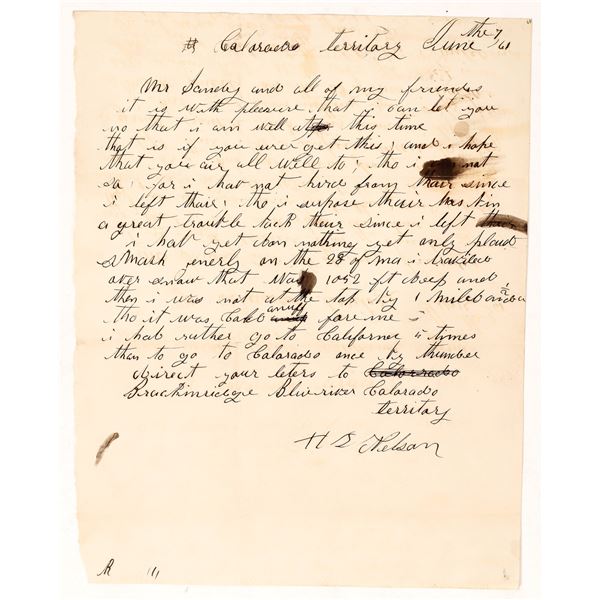 Colarado territory June the 7/61
Mr Sandy and all of my friends
it is with pleasure that i can let you
no that i am well at this time
that is if you ever get this; and i hope
that you air all well to; tho i not
so; for i hav not hird from thair since
i left thare; tho i surpose thair has bin
a great trouble back their since i left
i hav yet don nothing yet only plaid
smash enerly on the 28 of ma i traveled
over snow that was 1052 ft deep and
then i was not at the top by 1 mile and a
tho it was Cald anuf fore me
i had ruther go to Californey 11 times
than to go to Colarado once by thunder
direct your leters to Calorado
Brackinridge Blueriver Calarado
territory
H S Nelson